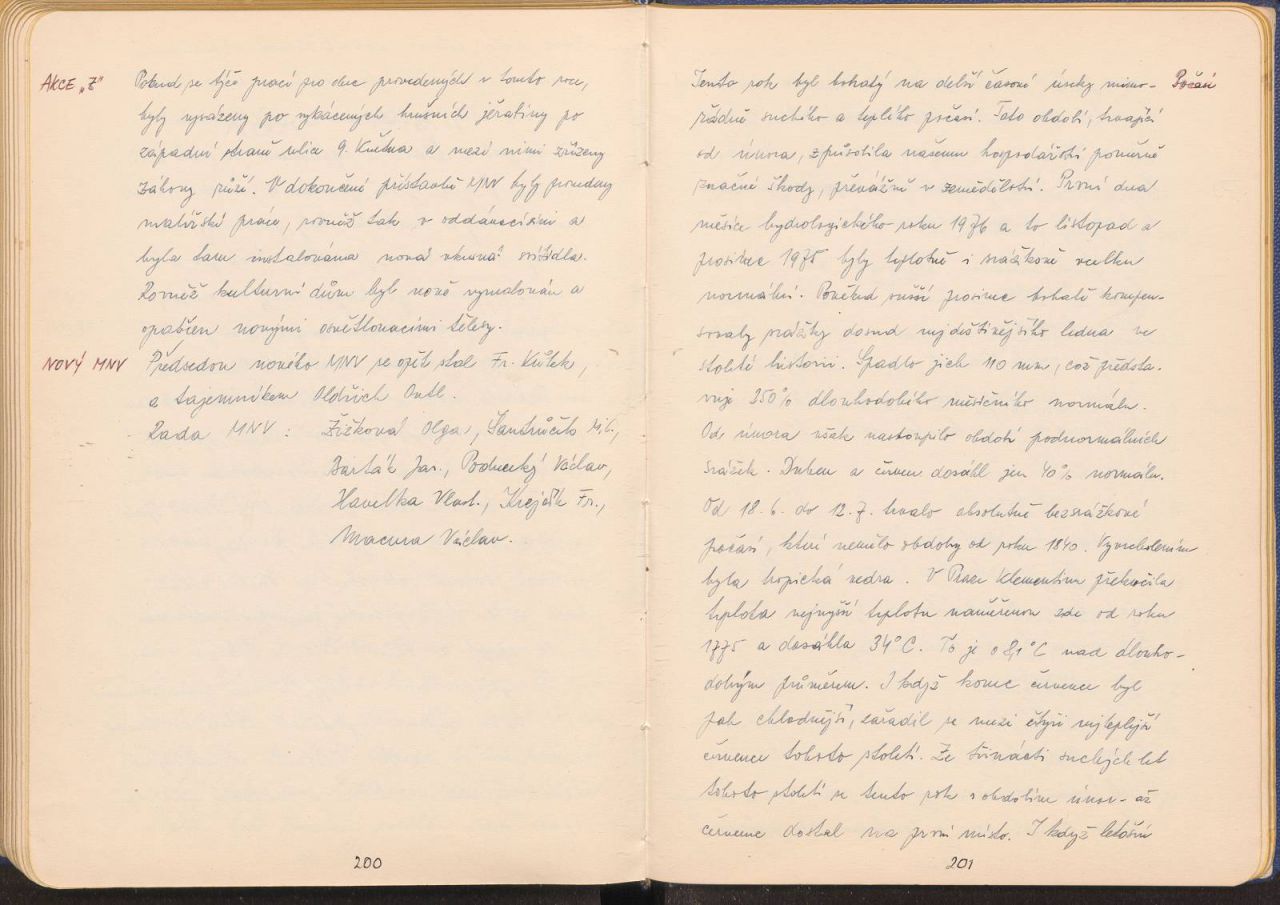 AKCE "Z" Pokud se týče prací pro obec provedených v tomto roce,
byly vysázeny po vykácených hrušních jeřabiny po
západní straně ulice 9. Května a mezi nimi zřízeny
záhony růží. V dokončené přístavbě MNV byly provedeny
malířské práce, rovněž tak v oddávací síni a
byla tam instalována nová vkusná svítidla.
Rovněž kulturní dům byl nově vymalován a
opatřen novými osvětlovacími tělesy.
NOVÝ MNV Předsedou nového MNV se opět stal Fr. Kůtek,
a tajemníkem Oldřich Ortl.
Rada MNV : Žižková Olga, Santrůček Mil.,
Barták Jar., Podnecký Václav,
Havelka Vlast., Krejčík Fr.,
Macura Václav.
200
Tento rok byl bohatý na delší časové úseky mimo- Počasí
řádně suchého a teplého počasí. Toto období, trvající
od února, způsobila našemu hospodářství poměrně
značné škody, převážně v zemědělství. První dva
měsíce hydrologického roku 1976 a to listopad a
prosinec 1975 byly teplotně i srážkově vcelku
normální. Poněkud sušší prosinec bohatě kompen-
sovaly srážky dosud nejdeštivějšího ledna ve
stoleté historii. Spadlo jich 110 mm, což předsta-
vuje 250% dlouhodobého měsíčního normálu.
Od února však nastoupilo období podnormálních
srážek. Duben a červen dosáhl jen 40% normálu.
Od 18.6. do 12.7. trvalo absolutně bezsrážkové
počasí, které nemělo obdoby od roku 1840. Vyvrcholením
byla tropická vedra. V Praze Klementinu překročila
teplota nejvyšší teplotu naměřenou zde od roku
1775 a dosáhla 34°C. To je o 8,1°C nad dlouho-
dobým průměrem. I když konec července byl
pak chladnější, zařadil se mezi čtyři nejteplejší
července tohoto století. Ze třinácti suchých let
tohoto století se tento rok s obdobím únor- až
červenec dostal na první místo. I když letošní
201